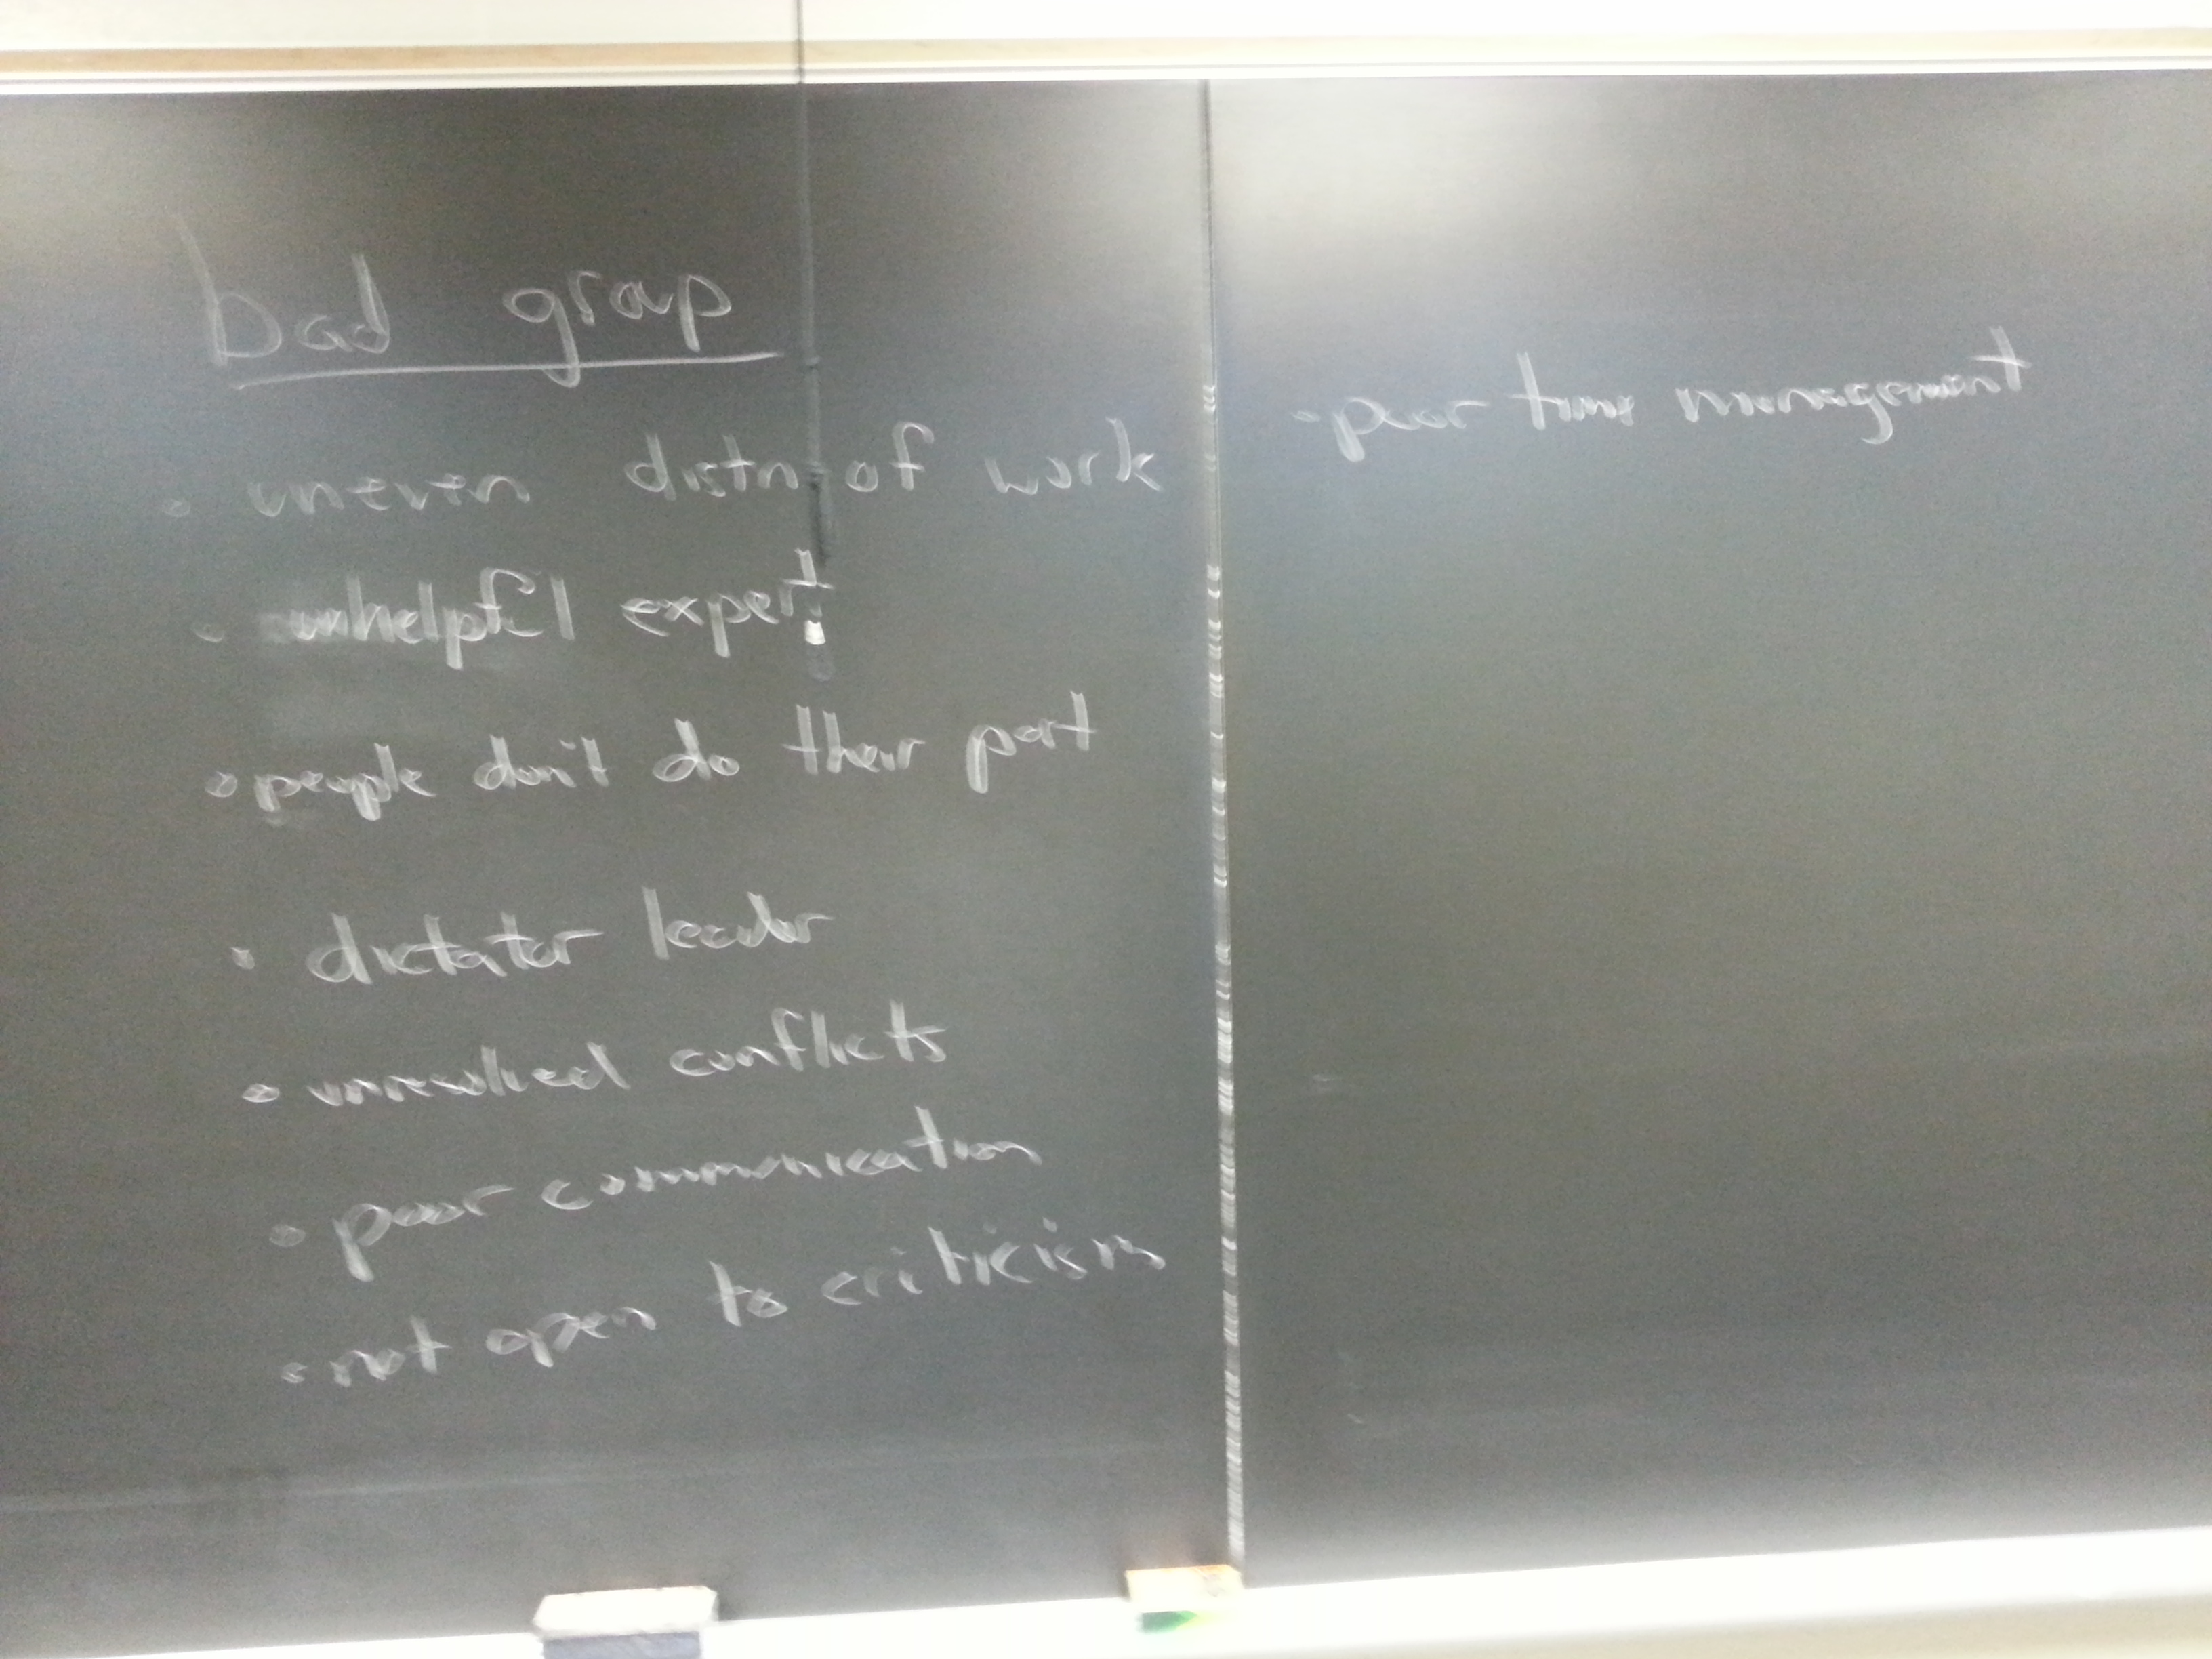 bad group
• uneven distn of work
• unhelpful expert
• people don't do their part
• dictator leader
• unresolved conflicts
• poor communication
• not open to criticism
• poor time management